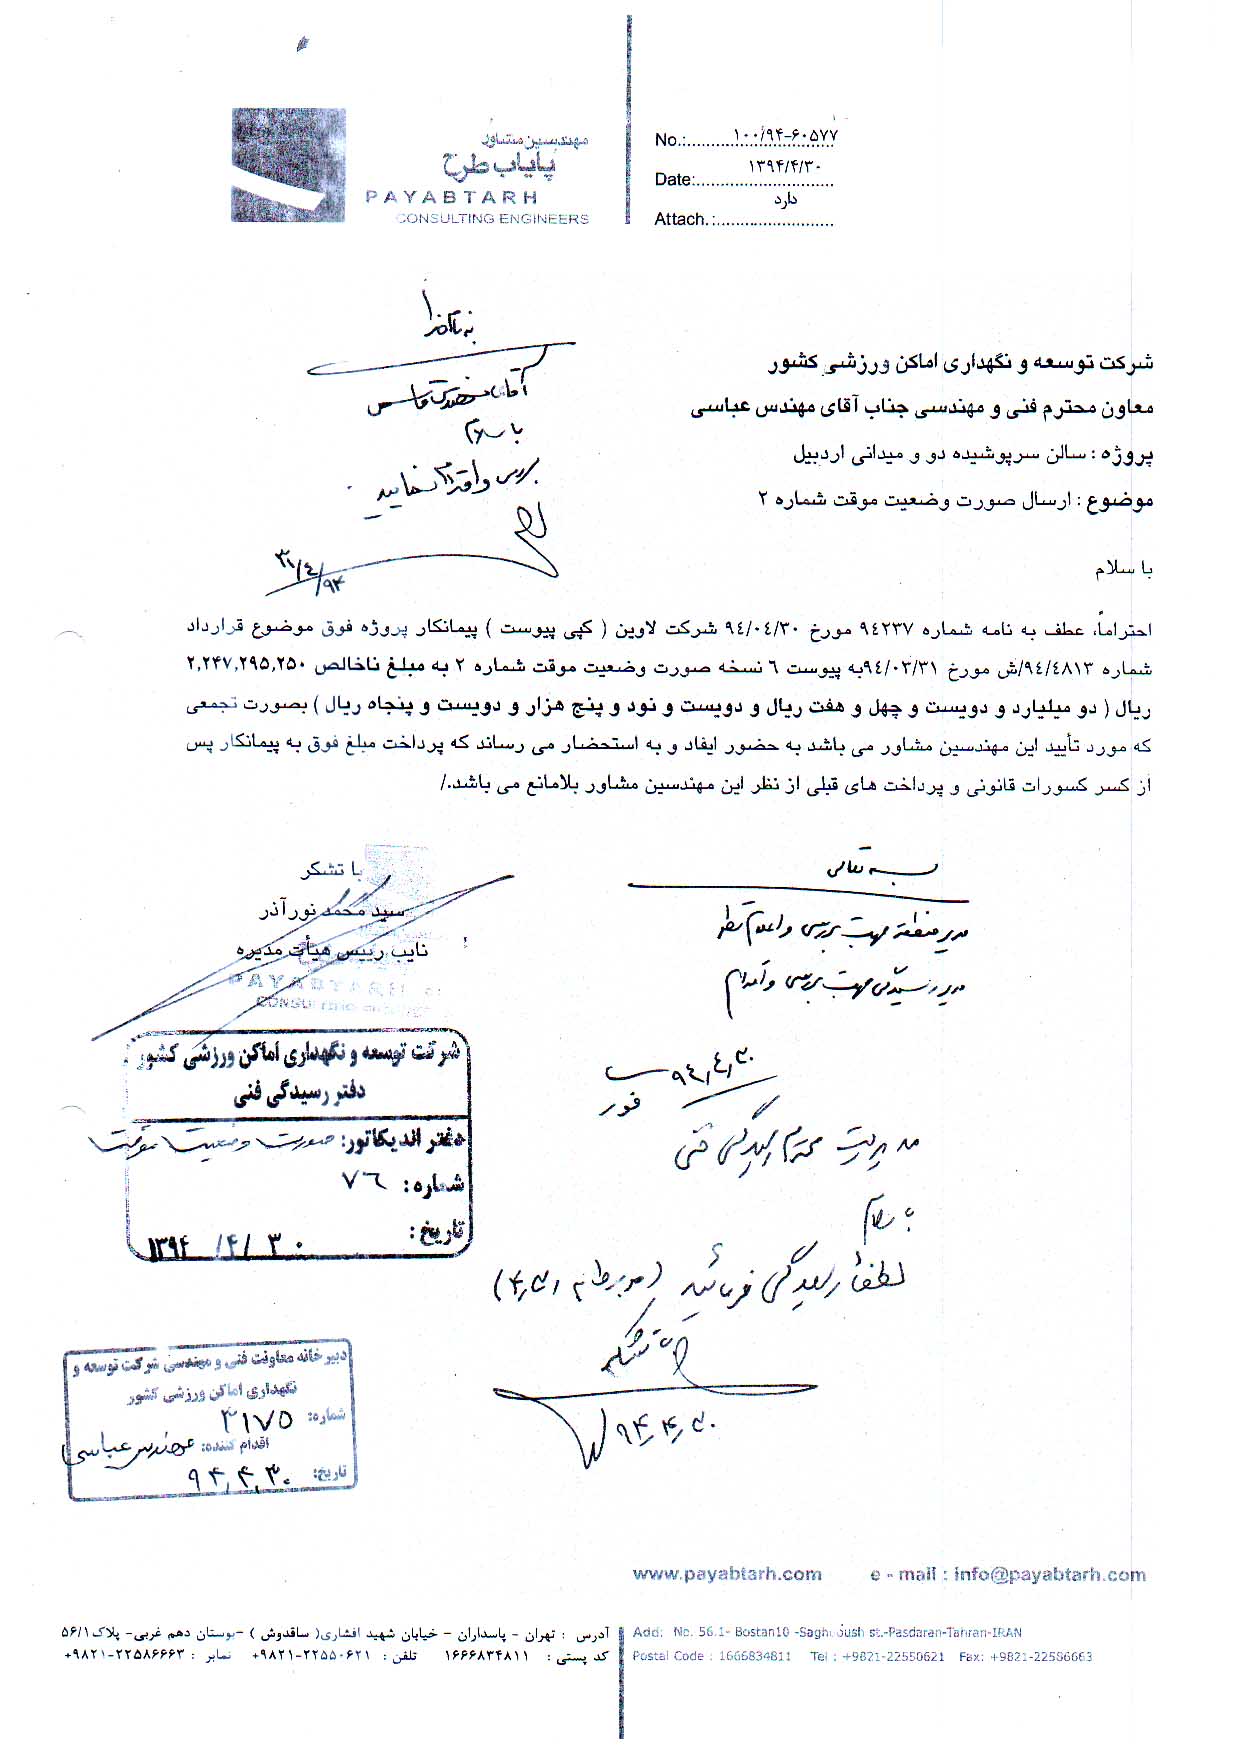 مهندسین مشاور
پایاب طرح
PAYABTARH
CONSULTING ENGINEERS
No.:..........۱۰۰/۹۴-۶۰۵۷۷
Date:..........۱۳۹۴/۴/۳۰
Attach.:..........دارد
شرکت توسعه و نگهداری اماکن ورزشی کشور
معاون محترم فنی و مهندسی جناب آقای مهندس عباسی
پروژه : سالن سرپوشیده دو و میدانی اردبیل
موضوع : ارسال صورت وضعیت موقت شماره ۲
با سلام
آقای مهندس
با سلام
بررسی و اقدام نمایید
۹۴/۴/۳۱
احتراماً، عطف به نامه شماره ۹٤۲۳۷ مورخ ۹٤/۰٤/۳۰ شرکت لاوین ( کپی پیوست ) پیمانکار پروژه فوق موضوع قرارداد
شماره ۹٤/٤۸۱۳/ش مورخ ۹٤/۰۳/۳۱به پیوست ٦ نسخه صورت وضعیت موقت شماره ۲ به مبلغ ناخالص ۲,۲٤۷,۲۹٥,۲٥۰
ریال ( دو میلیارد و دویست و چهل و هفت ریال و دویست و نود و پنج هزار و دویست و پنجاه ریال ) بصورت تجمعی
که مورد تأیید این مهندسین مشاور می باشد به حضور ایفاد و به استحضار می رساند که پرداخت مبلغ فوق به پیمانکار پس
از کسر کسورات قانونی و پرداخت های قبلی از نظر این مهندسین مشاور بلامانع می باشد./
با تشکر
سید محمد نورآذر
نایب رییس هیأت مدیره
PAYABTARH
بسمه تعالی
مدیر منطقه جهت بررسی و اعلام نظر
مدیر رسیدگی جهت بررسی و اقدام
۹٤,٤,۳۰
فوری
مدیریت محترم رسیدگی فنی
با سلام
لطفاً رسیدگی فرمائید
با تشکر
۹۴,۴,۳۰
شرکت توسعه و نگهداری اماکن ورزشی کشور
دفتر رسیدگی فنی
دفتر اندیکاتور: صورت وضعیت موقت
شماره: ۷٦
تاریخ: ۱۳۹۴/۴/۳۰
دبیرخانه معاونت فنی و مهندسی شرکت توسعه و
نگهداری اماکن ورزشی کشور
شماره: ۳۱۷۵
اقدام کننده: مهندس عباسی
تاریخ: ۹۴,۴,۳۰
www.payabtarh.com e - mail : info@payabtarh.com
آدرس : تهران - پاسداران - خیابان شهید افشاری( ساقدوش ) -بوستان دهم غربی- پلاک ۵۶/۱
کد پستی : ۱۶۶۶۸۳۴۸۱۱ تلفن : ۲۲۵۵۰۶۲۱-۹۸۲۱+ نمابر : ۲۲۵۸۶۶۶۳-۹۸۲۱+
Add: No. 56.1- Bostan10 -Saghdoush st.-Pasdaran-Tehran-IRAN
Postal Code : 1666834811 Tel : +9821-22550621 Fax: +9821-22586663